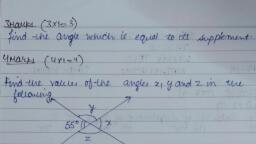 3marks (3x1=3)
find the angle which is equal to its supplement
4marks (4x1=4)
Find the values of the angles x, y and z in the
following
y
55° x
z